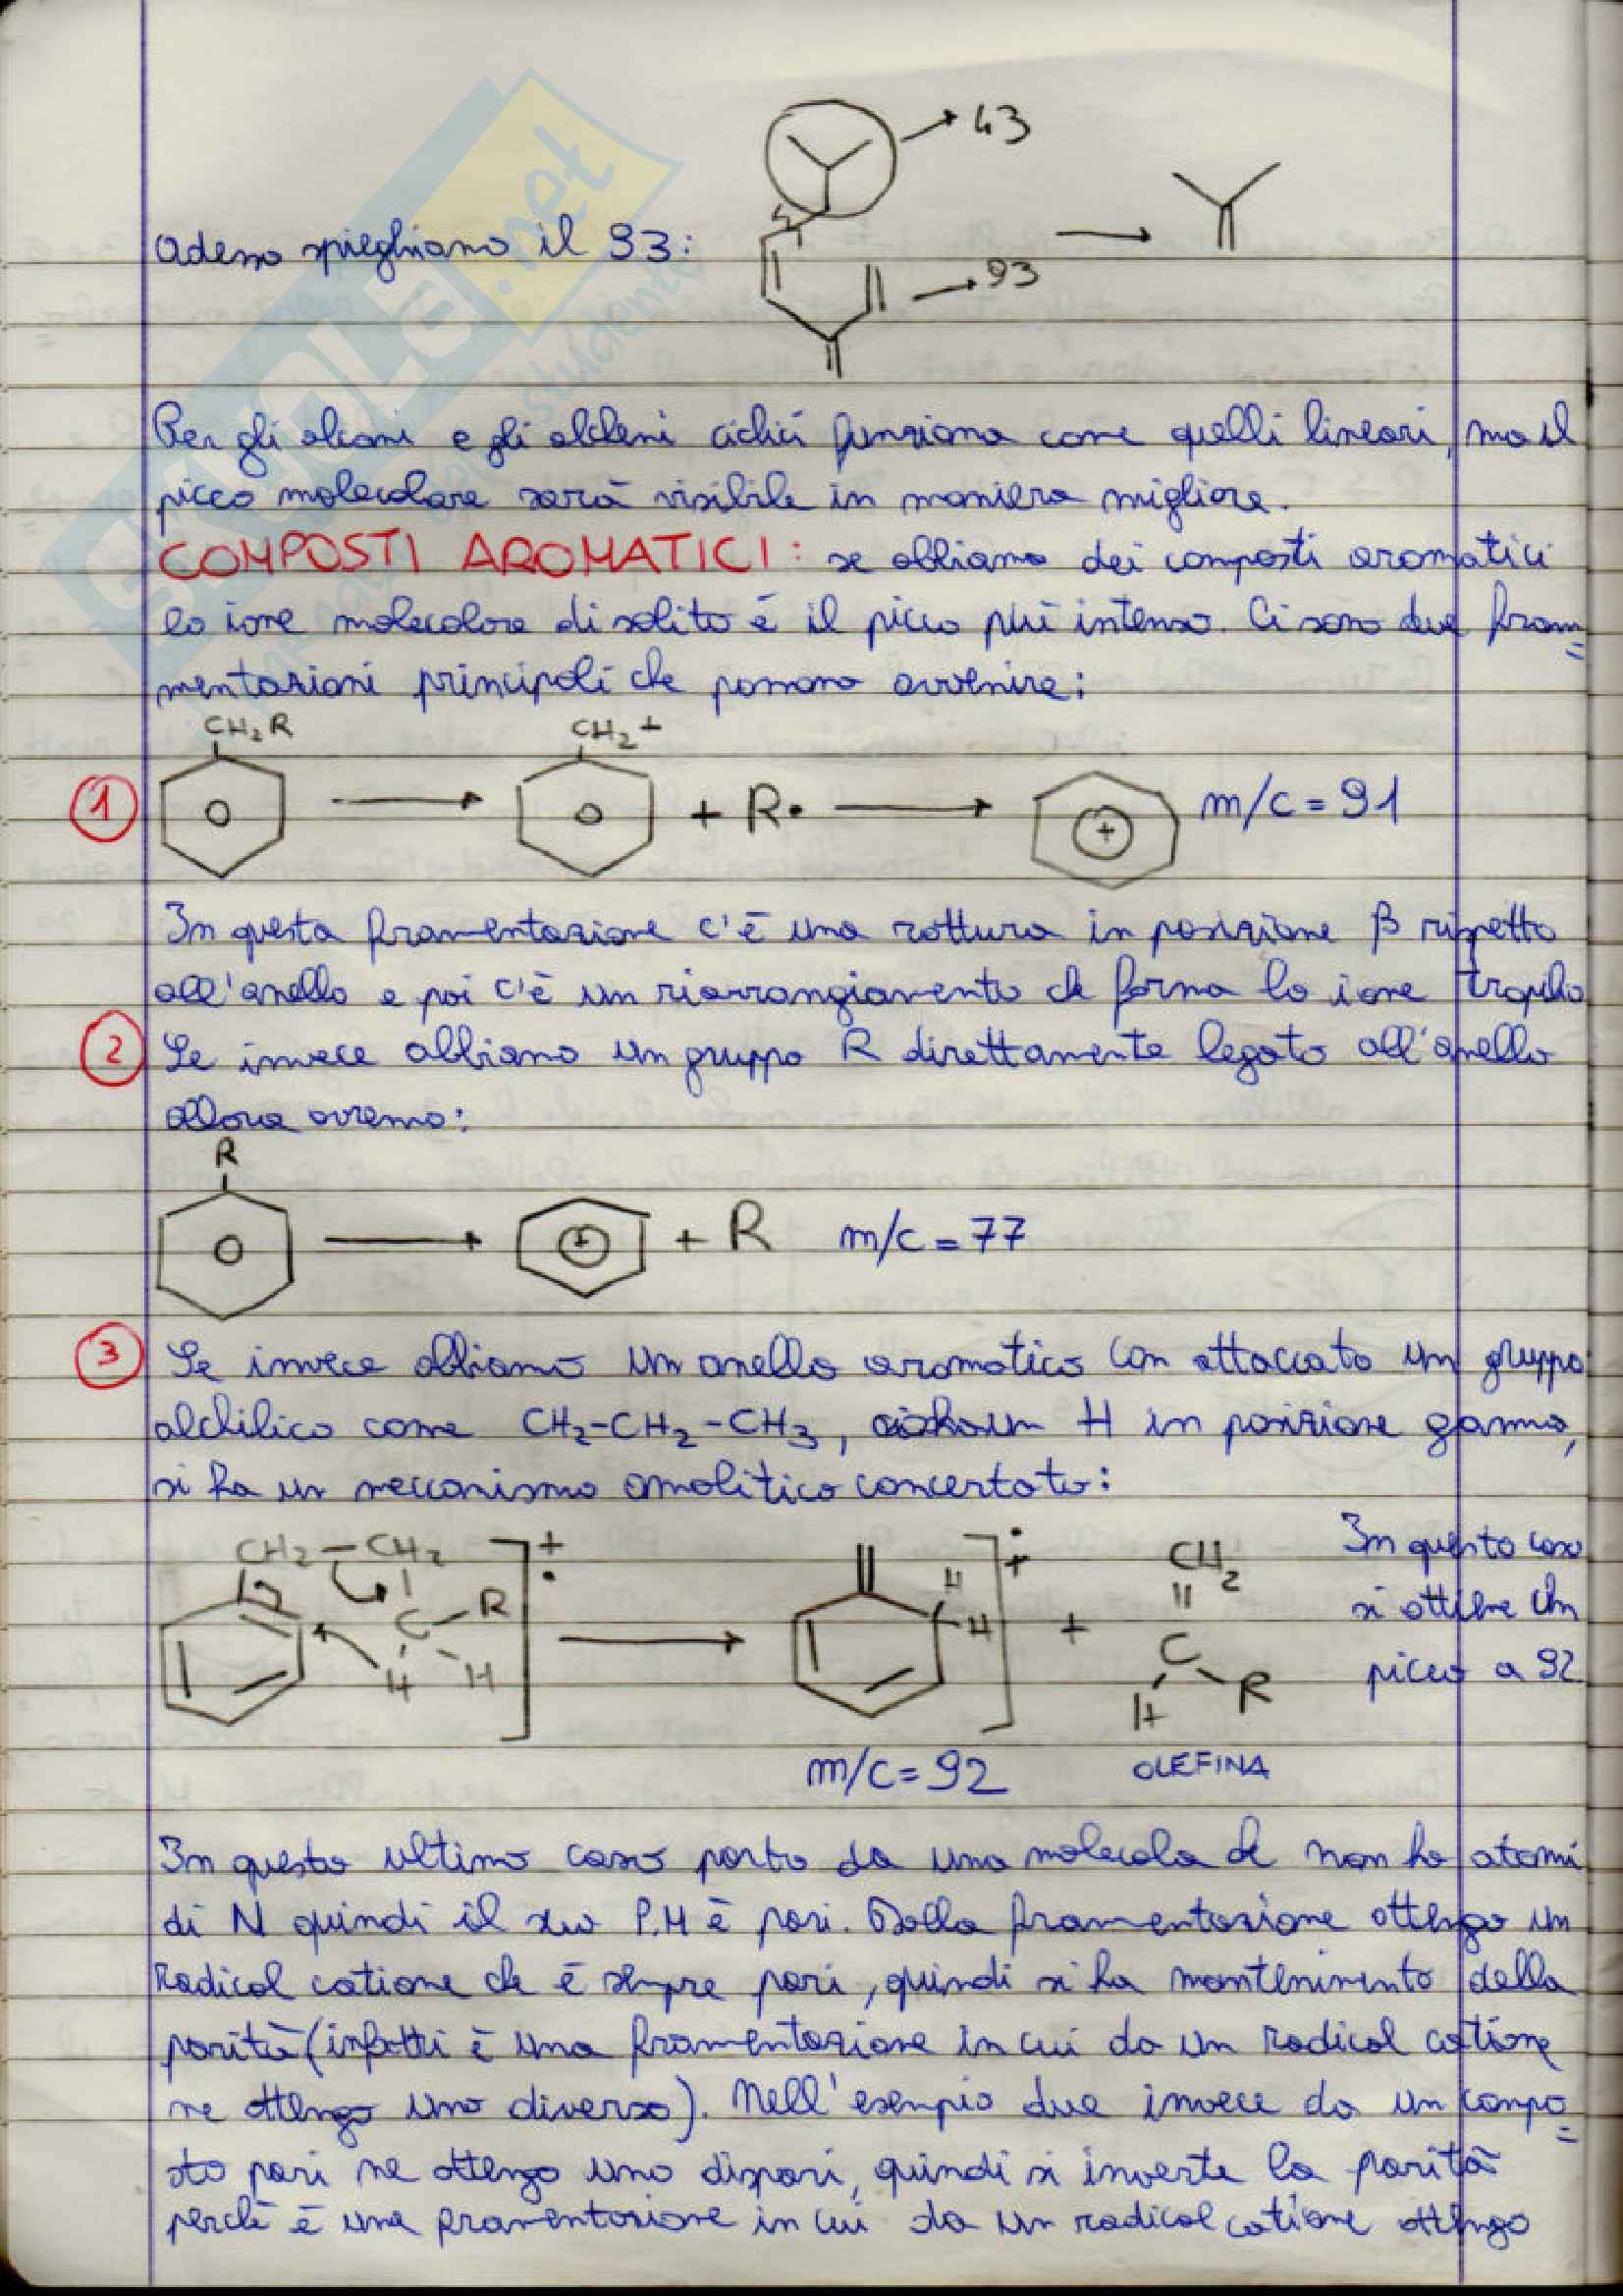 43
Adesso spieghiamo il 93:
93
Per gli alcani e gli alcheni ciclici funziona come quelli lineari, ma il
picco molecolare sarà visibile in maniera migliore.
COMPOSTI AROMATICI: se abbiamo dei composti aromatici
lo ione molecolare di solito è il picco più intenso. Ci sono due fram=
mentazioni principali che possono avvenire:
CH2R CH2+
1 + R• + m/c = 91
In questa frammentazione c'è una rottura in posizione β rispetto
all'anello e poi c'è un riarrangiamento che forma lo ione tropilio
2 Se invece abbiamo un gruppo R direttamente legato all'anello
allora avremo:
R
+ + R m/c = 77
3 Se invece abbiamo un anello aromatico con attaccato un gruppo
alchilico come CH2-CH2-CH3, H in posizione gamma,
si ha un meccanismo omolitico concertato:
CH2 - CH2 +• •+ CH2 In questo caso
C R H H + C si ottiene un
H H H R picco a 92
m/c = 92 OLEFINA
In questo ultimo caso parto da una molecola che non ha atomi
di N quindi il suo P.M è pari. Dalla frammentazione ottengo un
radical catione che è sempre pari, quindi si ha mantenimento della
parità (infatti è una frammentazione in cui da un radical catione
ne ottengo uno diverso). Nell'esempio due invece da un compo=
sto pari ne ottengo uno dispari, quindi si inverte la parità
perchè è una frammentazione in cui da un radical catione ottengo
SKUOLA.net